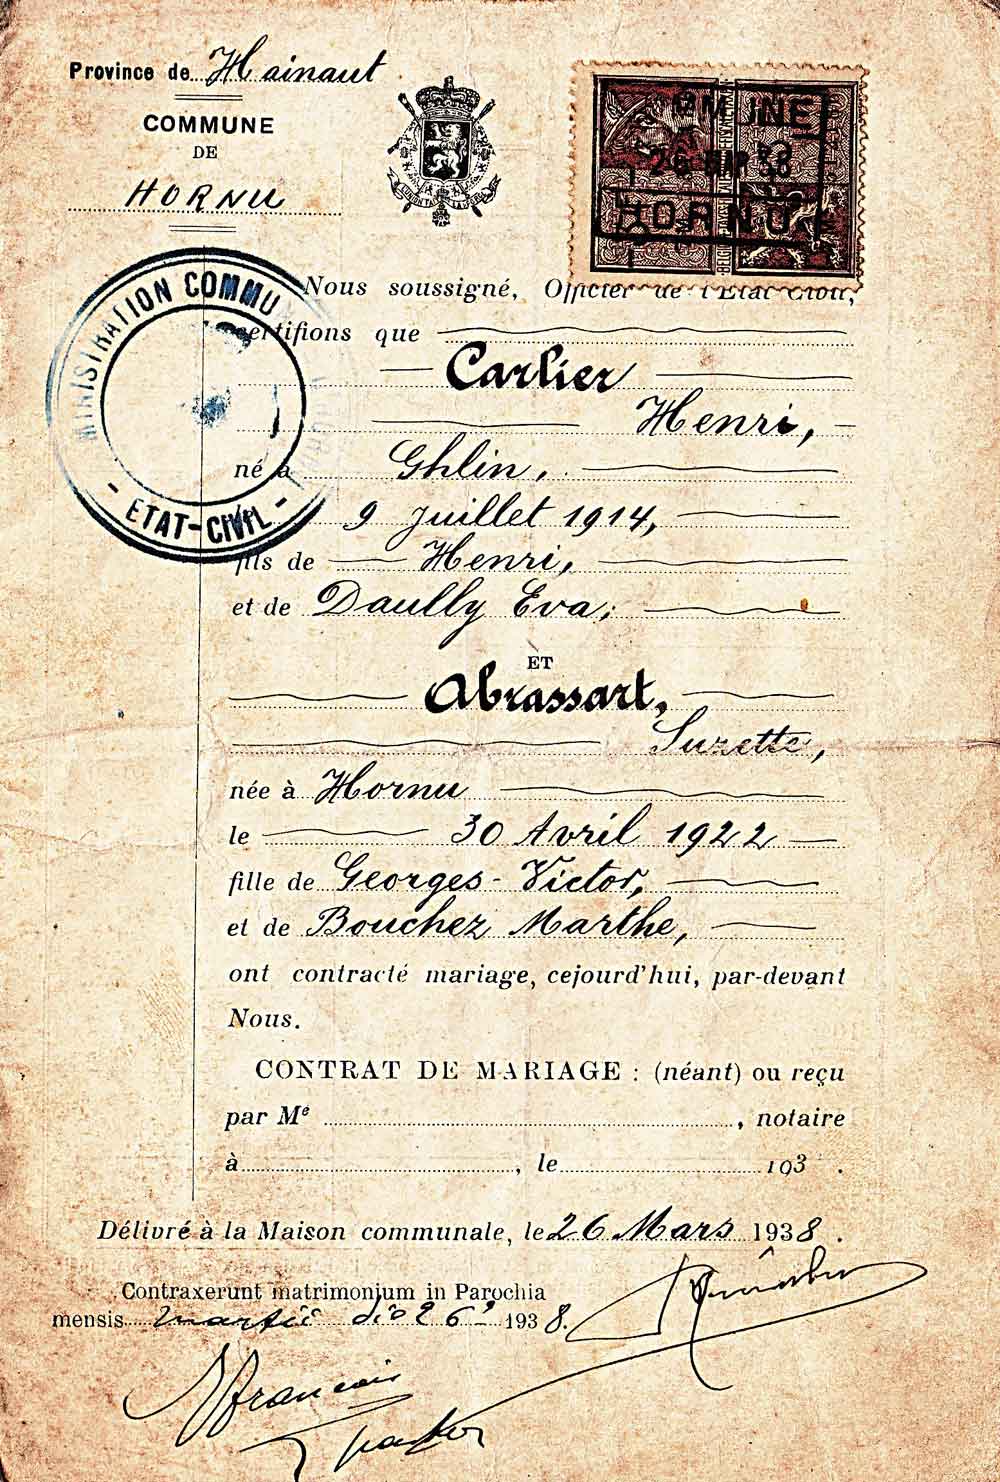 Province de Hainaut
COMMUNE
DE
HORNU
COMMUNE
26 38
HORNU
MINISTRATION COMMU
- ETAT-CIVIL -
Nous soussigné, Officier de l'Etat Civil,
certifions que
Carlier
Henri,
né à Ghlin,
9 Juillet 1914,
fils de Henri,
et de Daully Eva;
ET
Abrassart,
Suzette,
née à Hornu
le 30 Avril 1922
fille de Georges-Victor,
et de Bouchez Marthe,
ont contracté mariage, cejourd'hui, par-devant
Nous.
CONTRAT DE MARIAGE : (néant) ou reçu
par Me , notaire
à , le 193 .
Délivré à la Maison communale, le 26 Mars 1938 .
Contraxerunt matrimonium in Parochia
mensis martii die 26 1938.